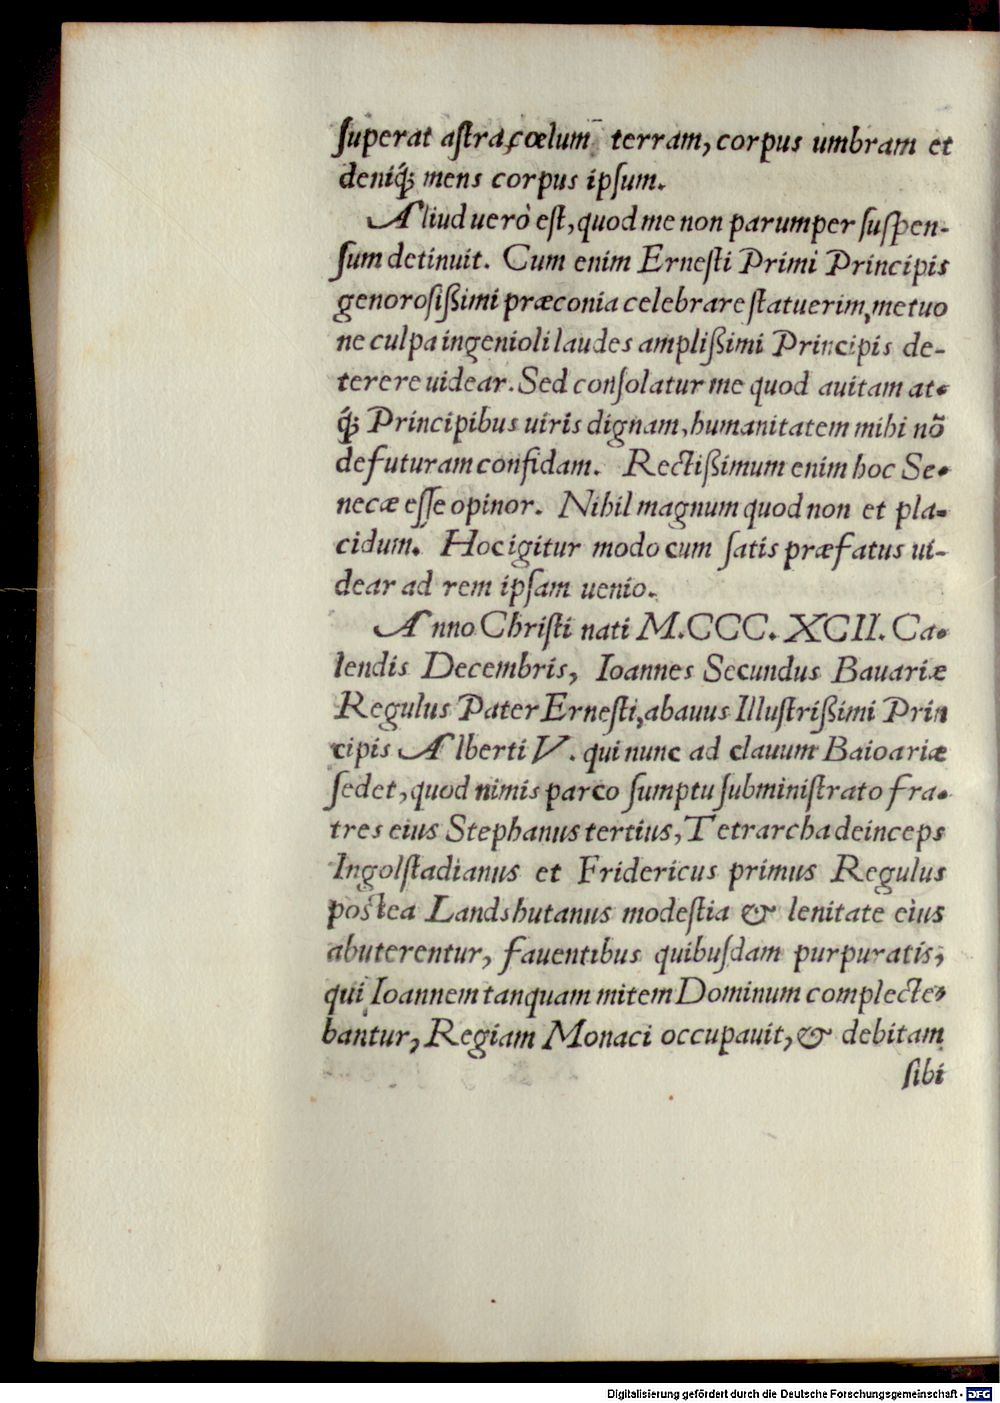 ſuperat aſtra, cœlum terram, corpus umbram et
deniq́; mens corpus ipſum.
Aliud uerò eſt, quod me non parumper ſuſpen-
ſum detinuit. Cum enim Erneſti Primi Principis
genoroſißimi præconia celebrare ſtatuerim, metuo
ne culpa ingenioli laudes amplißimi Principis de-
terere uidear. Sed conſolatur me quod auitam at-
q́; Principibus uiris dignam, humanitatem mihi nō
defuturam confidam. Rectißimum enim hoc Se-
necæ eſſe opinor. Nihil magnum quod non et pla-
cidum. Hoc igitur modo cum ſatis præfatus ui-
dear ad rem ipſam uenio.
Anno Chriſti nati M.CCC. XCII. Ca-
lendis Decembris, Ioannes Secundus Bauariæ
Regulus Pater Erneſti, abauus Illuſtrißimi Prin
cipis Alberti V. qui nunc ad clauum Baioariæ
ſedet, quod nimis parco ſumptu ſubminiſtrato fra-
tres eius Stephanus tertius, Tetrarcha deinceps
Ingolſtadianus et Fridericus primus Regulus
poſtea Landshutanus modeſtia & lenitate eius
abuterentur, fauentibus quibuſdam purpuratis,
qui Ioannem tanquam mitem Dominum complecte-
bantur, Regiam Monaci occupauit, & debitam
ſibi
Digitalisierung gefördert durch die Deutsche Forschungsgemeinschaft - DFG